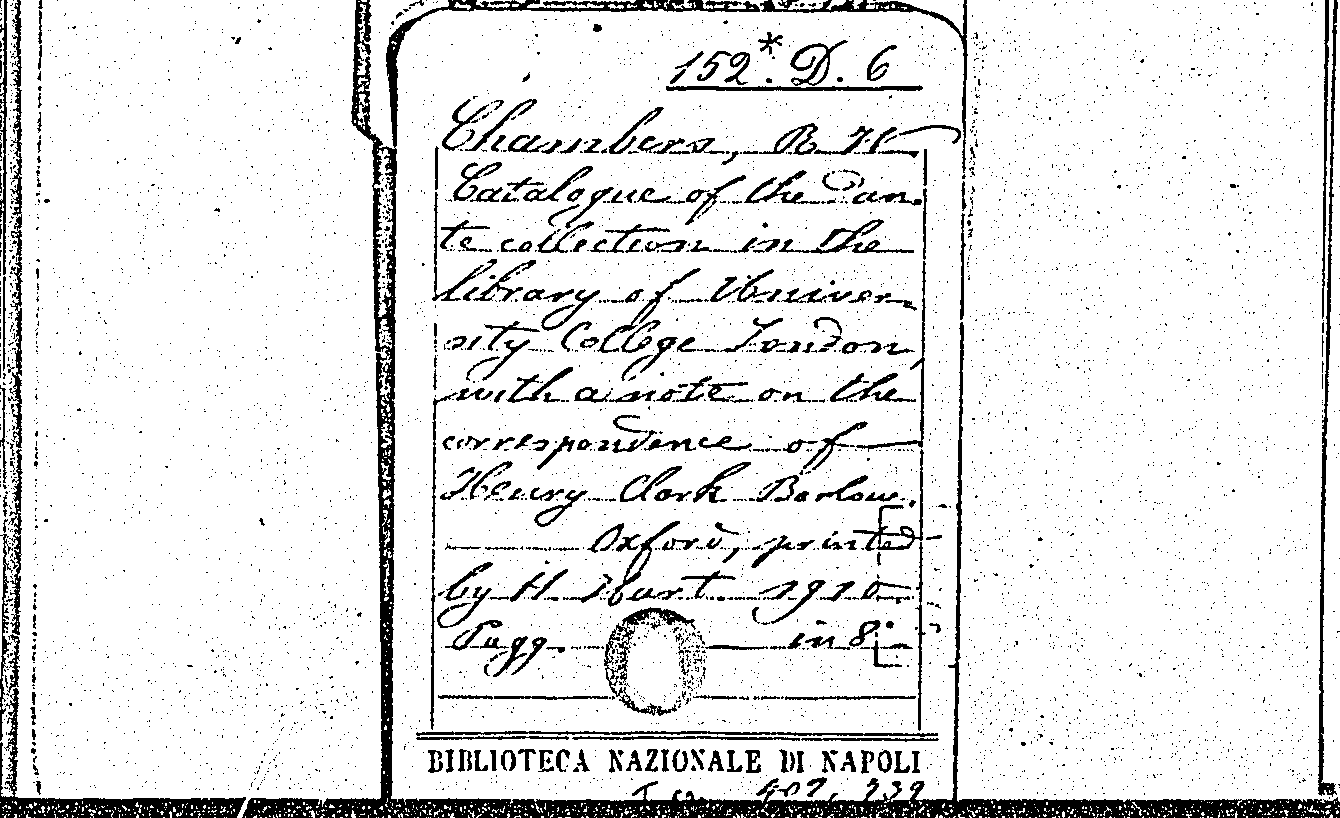 152*. D. 6
Chambers, R. W.
Catalogue of the Dan-
te collection in the
library of Univer-
sity College London,
with a note on the
correspondence of
Henry Clark Barlow.
Oxford, printed
by H. Hart. 1910.
Pagg. in 8°
BIBLIOTECA NAZIONALE DI NAPOLI